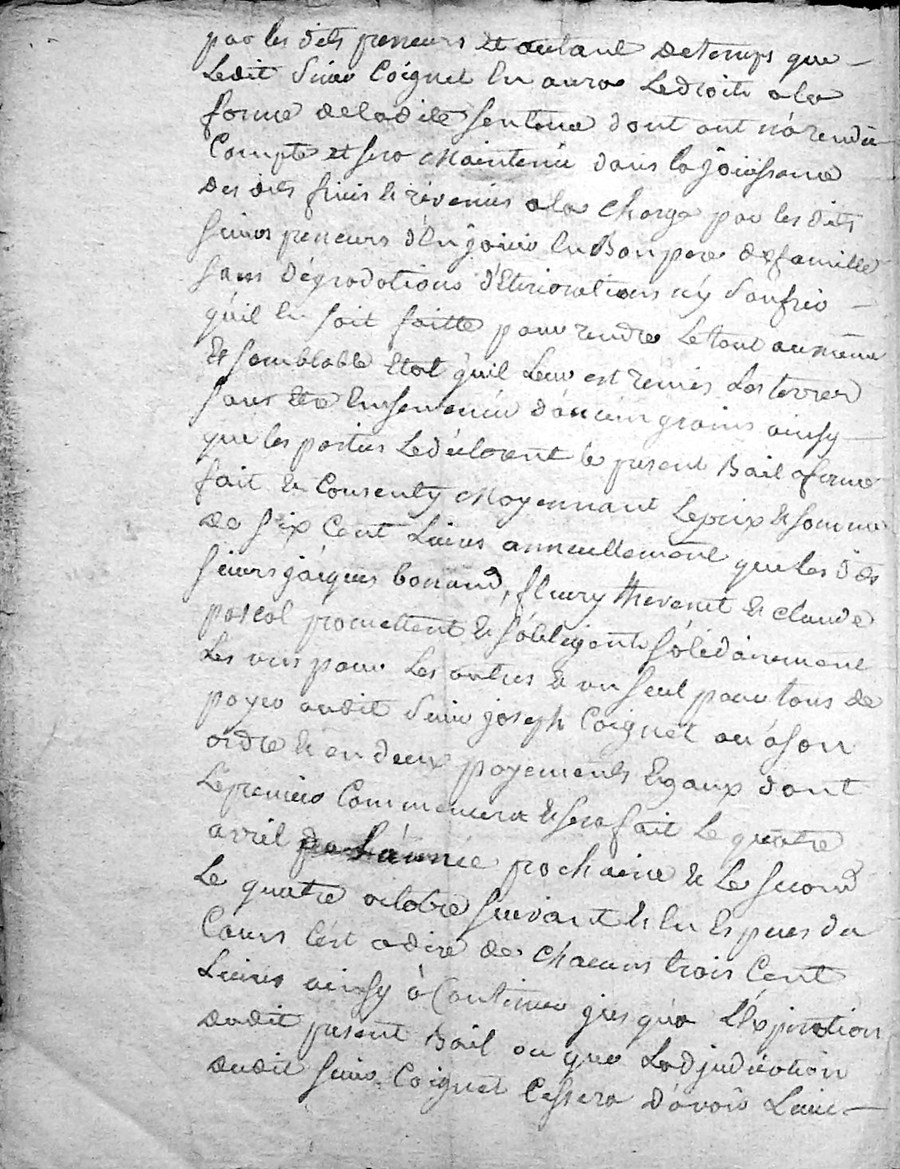 par les dits preneurs et autant de temps que
Ledit Sieur Coignet En aura Le droit a la
forme de la dite Sentence dont ont n'a rendu
Compte et sera Maintenu dans la joüissance
Des dits fruis & révenus a la charge par les dits
Sieurs preneurs d'En joüir En Bon pere de famille
sans Dégradations d'Etériorations n'y Soufrir
qu'il En soit faitte pour rendre Le tout au même
& semblable Etat qu'il Leur est remis Les terres
sans être Ensemencée d'aucun grains ainsy
que les parties Le déclarent le present Bail a ferme
fait & Consenty Moyennant Le prix & somme
de Six Cent Livres annuellement que les dits
Sieurs jácques bonnand, fleury thevenet & claude
pascal promettent & s'obligent Solidairement
Les uns pour Les autres & un seul pour tous de
payer audit Sieur joseph Coignet ou a son
ordre & en deux payements Egaux dont
Le premier Commencera & sera fait Le quatre
avril de L'année prochaine & Le second
Le quatre octobre suivant & En Espèces du
Cours C'est a dire de chacuns trois Cent
Livres ainsy à Continuer jusqu'a L'Expiration
dudit present Bail ou que L'adjudication
dudit Sieur Coignet Cessera d'avoir Lieu